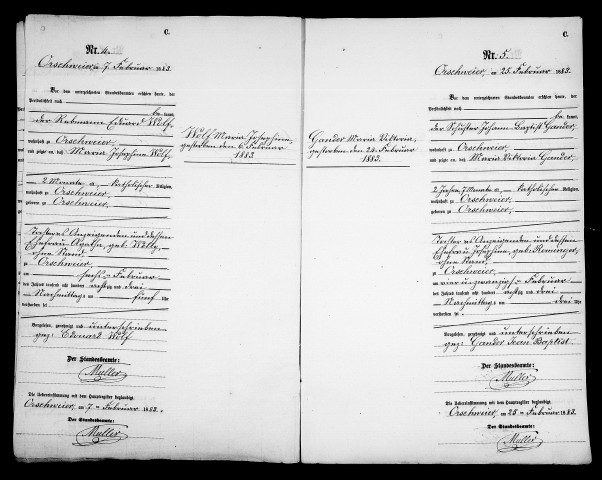 C.
Nr. 4.
Orschweier, am 7. Februar 1883.
Vor dem unterzeichneten Standesbeamten erschien heute, der
Persönlichkeit nach
be kannt,
der Rebmann Eduard Wolf,
wohnhaft zu Orschweier,
und zeigte an, daß Maria Josephina Wolf,
2 Monate a., katholischer Religion,
wohnhaft zu Orschweier,
geboren zu Orschweier,
Tochter des Anzeigenden und dessen
Ehefrau Agatha, geb.
ohne Stand,
zu Orschweier,
am sechs = Februar
des Jahres tausend acht hundert achtzig und drei
Nachmittags um fünf Uhr
verstorben sei
Vorgelesen, genehmigt und unterschrieben
gez: Edouard Wolf
Der Standesbeamte:
Muller
Die Uebereinstimmung mit dem Hauptregister beglaubigt.
Orschweier, am 7 = Februar 1883.
Der Standesbeamte:
Muller
Wolf Maria Josephina
gestorben den 6. Februar
1883.
Gander Maria Viktoria
gestorben den 24. Februar
1883.
C.
Nr. 5.
Orschweier, am 25. Februar 1883.
Vor dem unterzeichneten Standesbeamten erschien heute, der
Persönlichkeit nach
be kannt,
der Schuster Johann Baptist Gander,
wohnhaft zu Orschweier,
und zeigte an, daß Maria Viktoria Gander,
2 Jahre, 7 Monate a., katholischer Religion,
wohnhaft zu Orschweier,
geboren zu Orschweier,
Tochter des Anzeigenden und dessen
Ehefrau Josephina, geb. Reminger,
ohne Stand,
zu Orschweier,
am vier u. zwanzigs = Februar
des Jahres tausend acht hundert achtzig und drei
Nachmittags um drei Uhr
verstorben sei
Vorgelesen, genehmigt und unterschrieben
gez: Gander Jean Baptist.
Der Standesbeamte:
Muller
Die Uebereinstimmung mit dem Hauptregister beglaubigt.
Orschweier, am 25 = Februar 1883.
Der Standesbeamte:
Muller